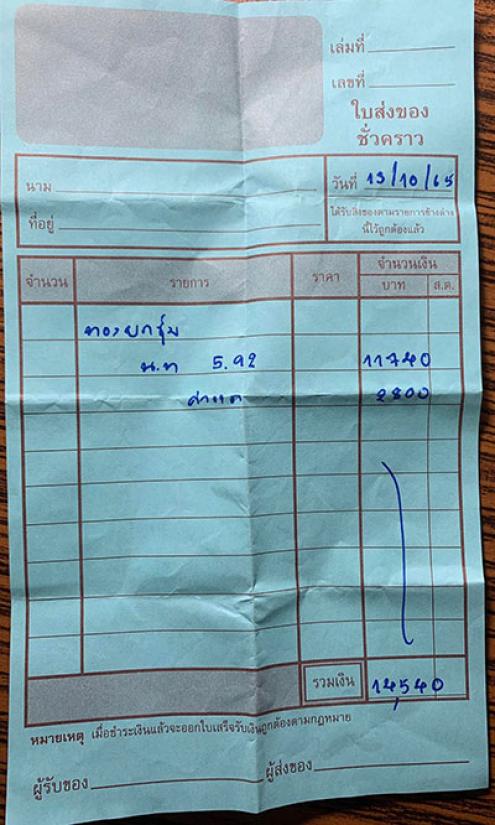 เล่มที่
เลขที่
ใบส่งของ
ชั่วคราว
นาม
วันที่ 13/10/65
ที่อยู่
ได้รับสิ่งของตามรายการข้างล่าง
นี้ไว้ถูกต้องแล้ว
จำนวน รายการ ราคา จำนวนเงิน
บาท ส.ต.
น.ท 5.92 11740
2800
รวมเงิน 14,540
หมายเหตุ เมื่อชำระเงินแล้วจะออกใบเสร็จรับเงินถูกต้องตามกฎหมาย
ผู้รับของ ผู้ส่งของ